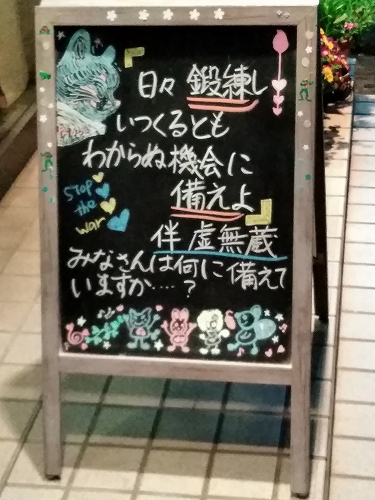 日々鍛練し
いつくるとも
わからぬ機会に
備えよ
伴虚無蔵
みなさんは何に備えて
いますか‥‥？
STOP
the
war